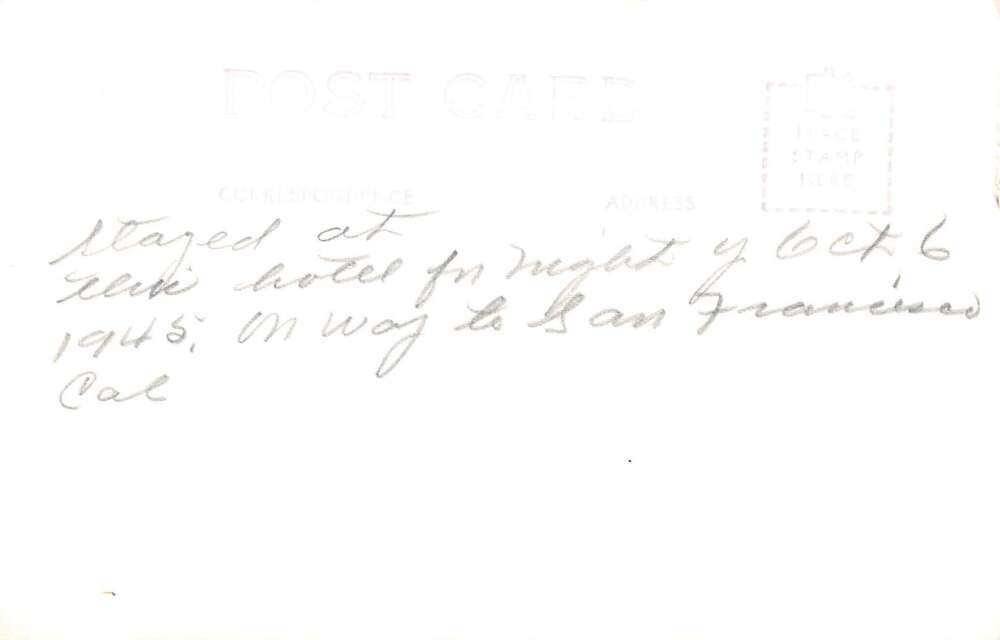 POST CARD
PLACE
STAMP
HERE
CORRESPONDENCE ADDRESS
stayed at
hotel for night of Oct 6
1945. on way to San Francisco
Cal